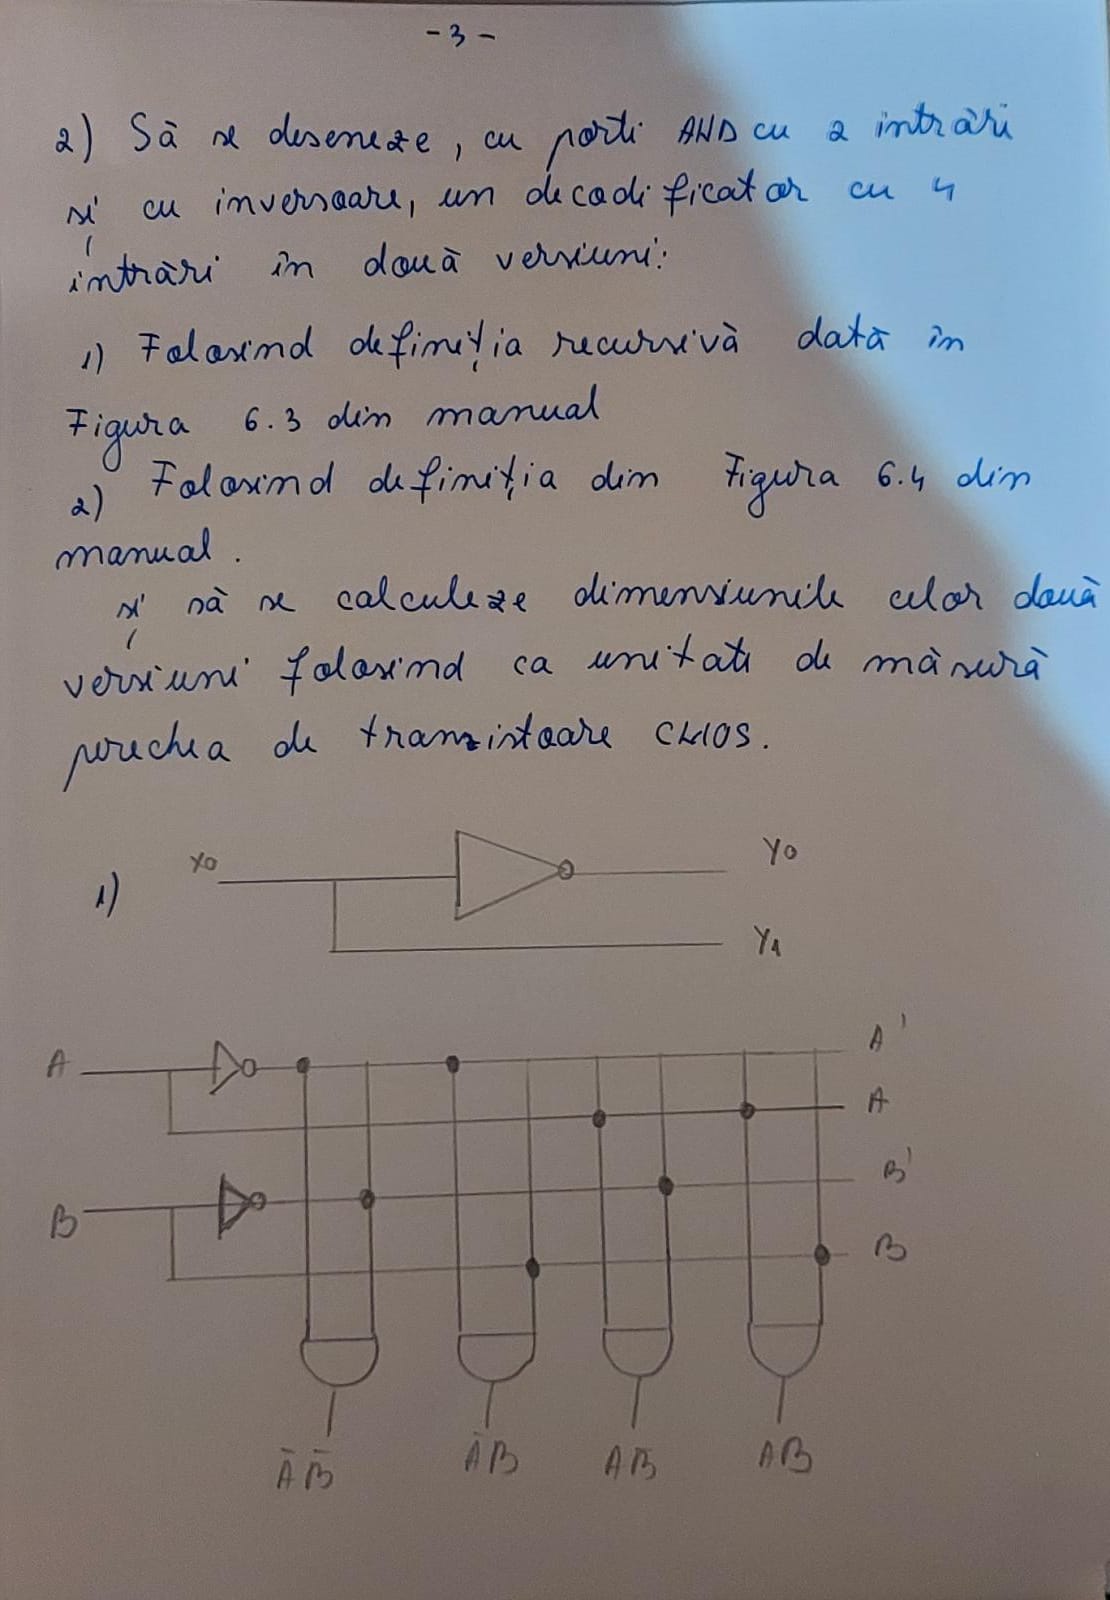 - 3 -
2) Să se deseneze, cu porti AND cu 2 intrări
și cu inversoare, un decodificator cu 4
intrări în două versiuni:
1) Folosind definiția recursivă dată în
Figura 6.3 din manual
2) Folosind definiția din Figura 6.4 din
manual.
și să se calculeze dimensiunile celor două
versiuni folosind ca unitati de măsură
perechea de tranzistoare CMOS.
1) X0 Y0
Y1
A A'
A
B B'
B
A̅B̅ A̅B AB̅ AB